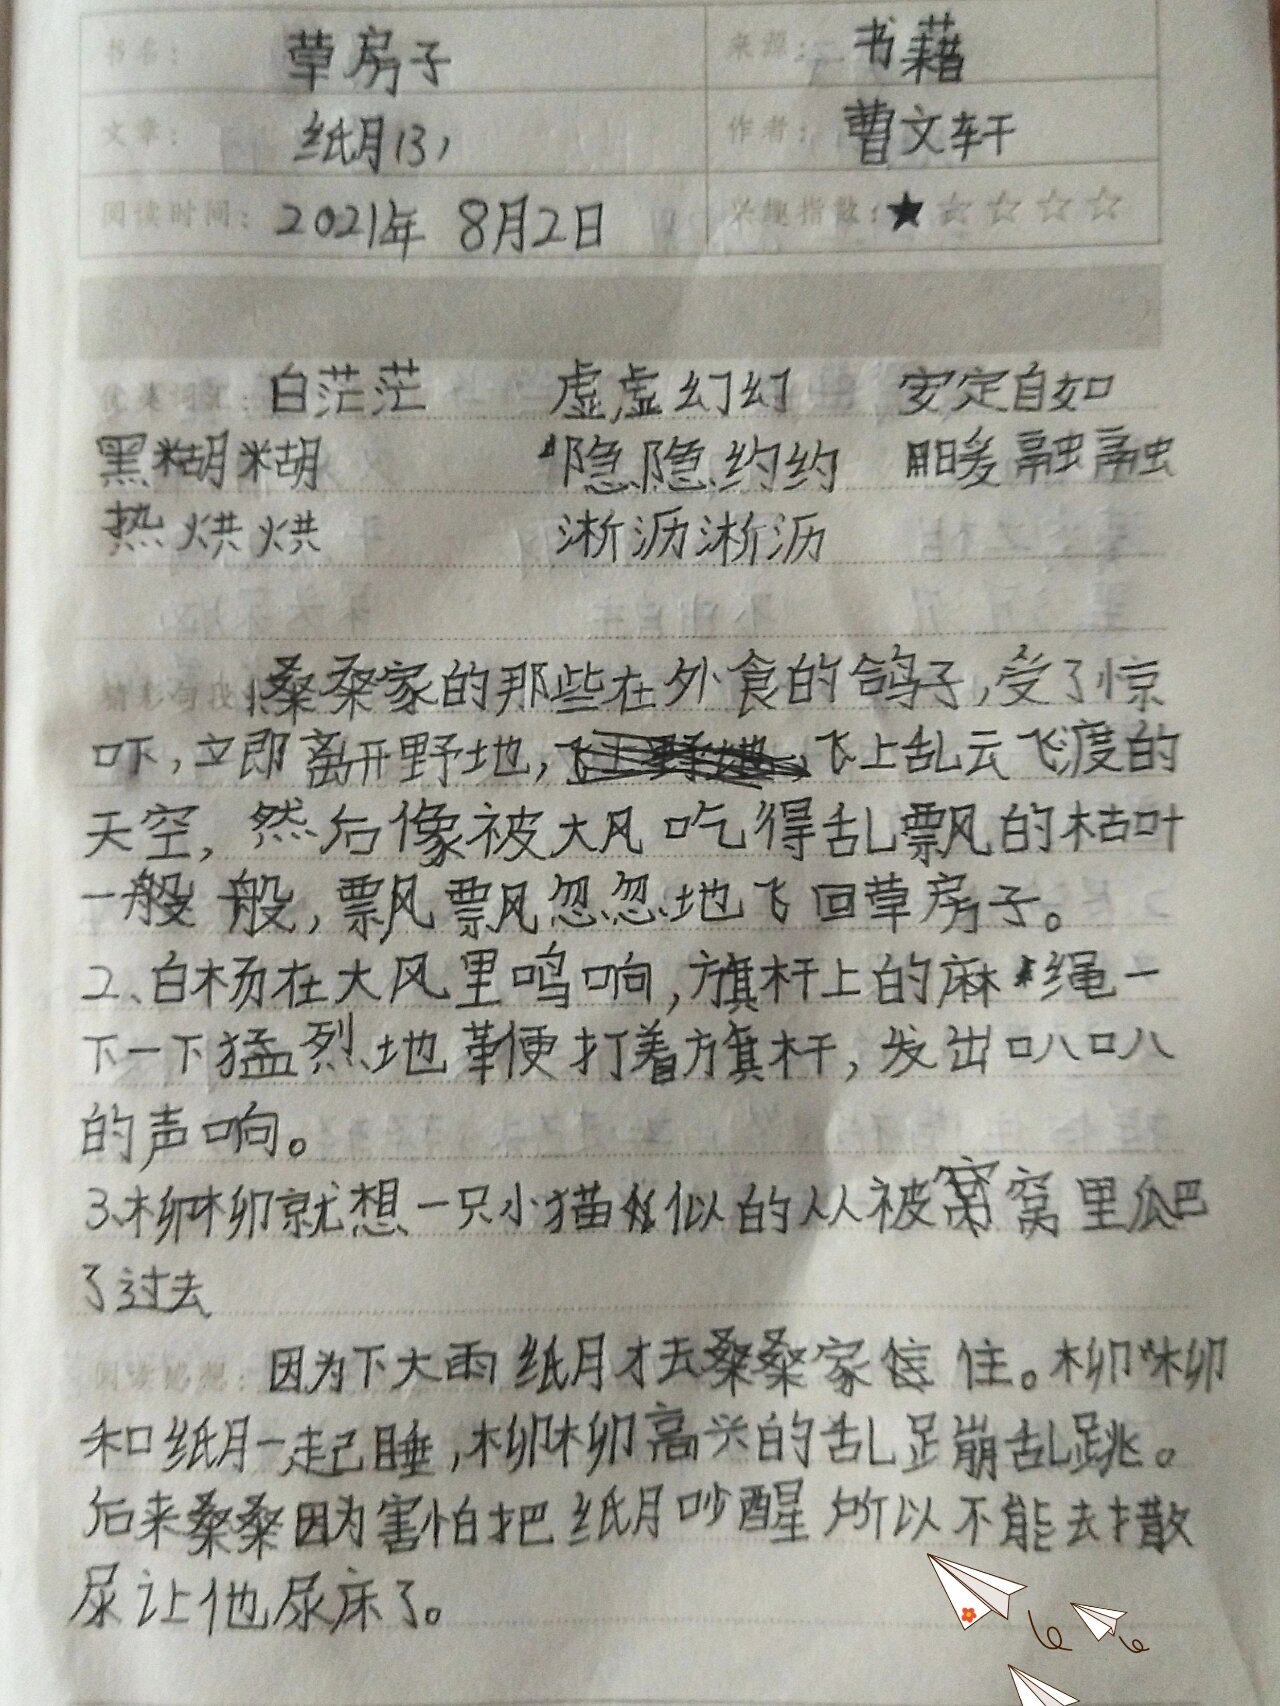 书名： 草房子 来源： 书籍
文章： 纸月(3) 作者： 曹文轩
阅读时间： 2021年 8月2日 兴趣指数：★☆☆☆☆
白茫茫 虚虚幻幻 安定自如
黑糊糊 隐隐约约 暖融融
热烘烘 淅沥淅沥
1桑桑家的那些在外食的鸽子,受了惊
吓,立即离开野地, 飞上乱云飞渡的
天空,然后像被大风吃得乱飘的枯叶
一般般,飘飘忽忽地飞回草房子。
2、白杨在大风里鸣响,旗杆上的麻绳一
下一下猛烈地鞭打着旗杆,发出叭叭
的声响。
3、柳柳就想一只小猫似的从被窝里爬
了过去
阅读感想： 因为下大雨纸月才去桑桑家住。柳柳
和纸月一起睡,柳柳高兴的乱蹦乱跳。
后来桑桑因为害怕把纸月吵醒所以不能去撒
尿让他尿床了。